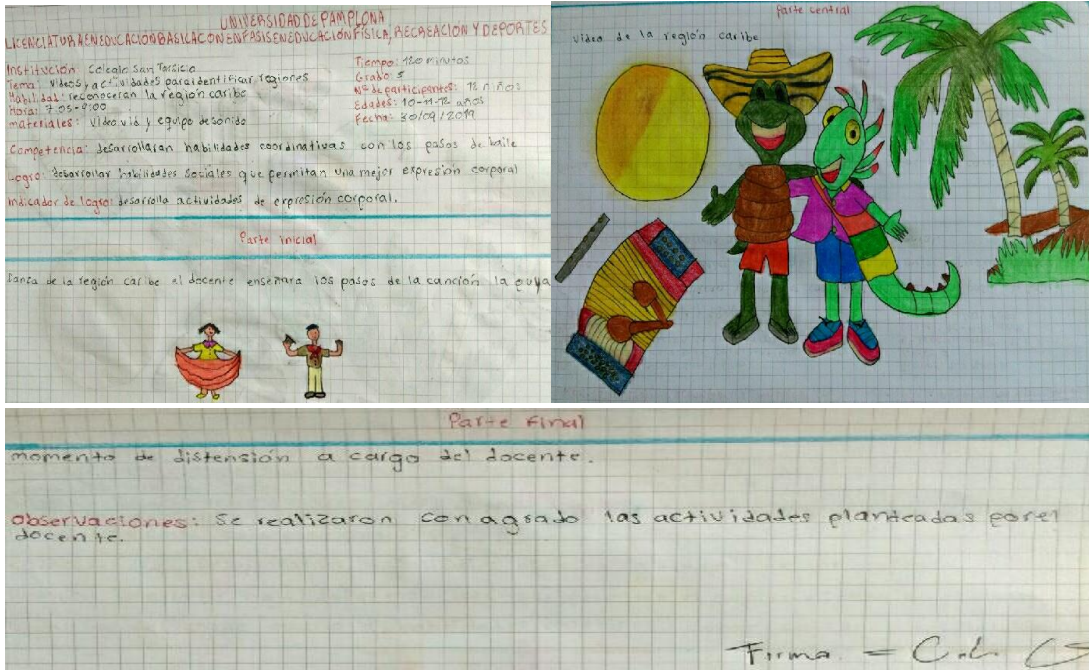 UNIVERSIDAD DE PAMPLONA
LICENCIATURA EN EDUCACIÓN BASICA CON ENFASIS EN EDUCACIÓN FÍSICA, RECREACIÓN Y DEPORTES
Institución: Colegio San Tarsicio
Tema: Videos y actividades para identificar regiones
Habilidad: reconoceran la región caribe
Hora: 7:05-9:00
materiales: video vid y equipo de sonido
Tiempo: 120 minutos
Grado: 5
Nº de participantes: 12 niños
Edades: 10-11-12 años
Fecha: 30/09/2019
Competencia: desarrollaran habilidades coordinativas con los pasos de baile
Logro: desarrollar habilidades sociales que permitan una mejor expresión corporal
Indicador de logro: desarrolla actividades de expresión corporal.
Parte inicial
Danza de la región caribe el docente enseñara los pasos de la canción la
Parte central
Video de la región caribe
Parte Final
momento de distensión a cargo del docente.
observaciones: Se realizaron con agrado las actividades planteadas por el
docente.
Firma =